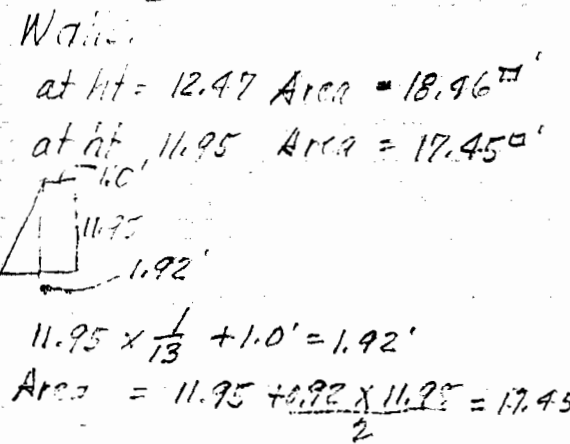 Walls.
at ht = 12.47 Area = 18.46□'
at ht 11.95 Area = 17.45□'
1.0'
11.95
1.92'
11.95 x 1/13 + 1.0' = 1.92'
Area = 11.95 + 0.92 x 11.95 / 2 = 17.45